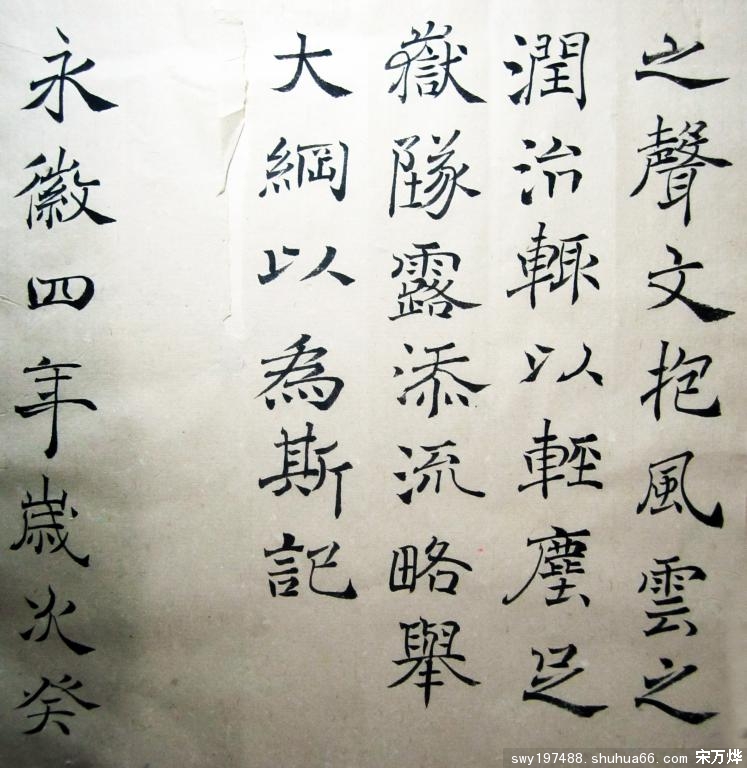 之聲文抱風雲之
潤治輙以輕塵足
嶽墜露添流略舉
大綱以為斯記
永徽四年歲次癸
swy197488.shuhua66.com 宋万烨